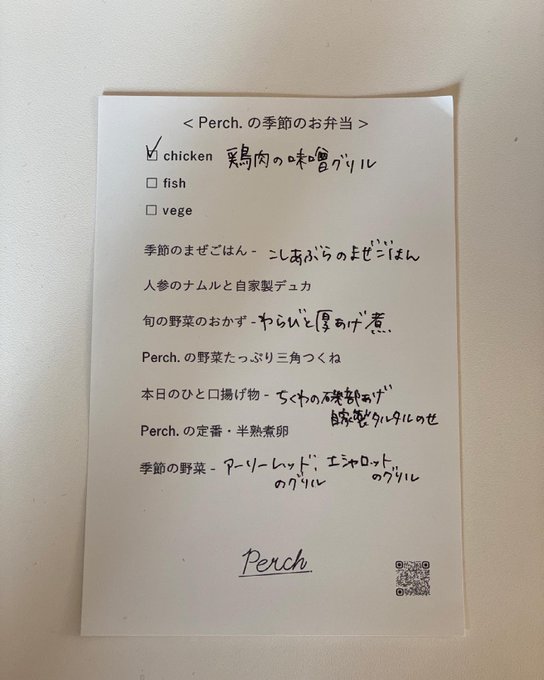 < Perch. の季節のお弁当 >
☑ chicken 鶏肉の味噌グリル
☐ fish
☐ vege
季節のまぜごはん - こしあぶらのまぜごはん
人参のナムルと自家製デュカ
旬の野菜のおかず - わらびと厚あげ煮
Perch. の野菜たっぷり三角つくね
本日のひと口揚げ物 - ちくわの磯部あげ
自家製タルタルのせ
Perch. の定番・半熟煮卵
季節の野菜 - アーリーレッド、エシャロット
のグリル のグリル
Perch.